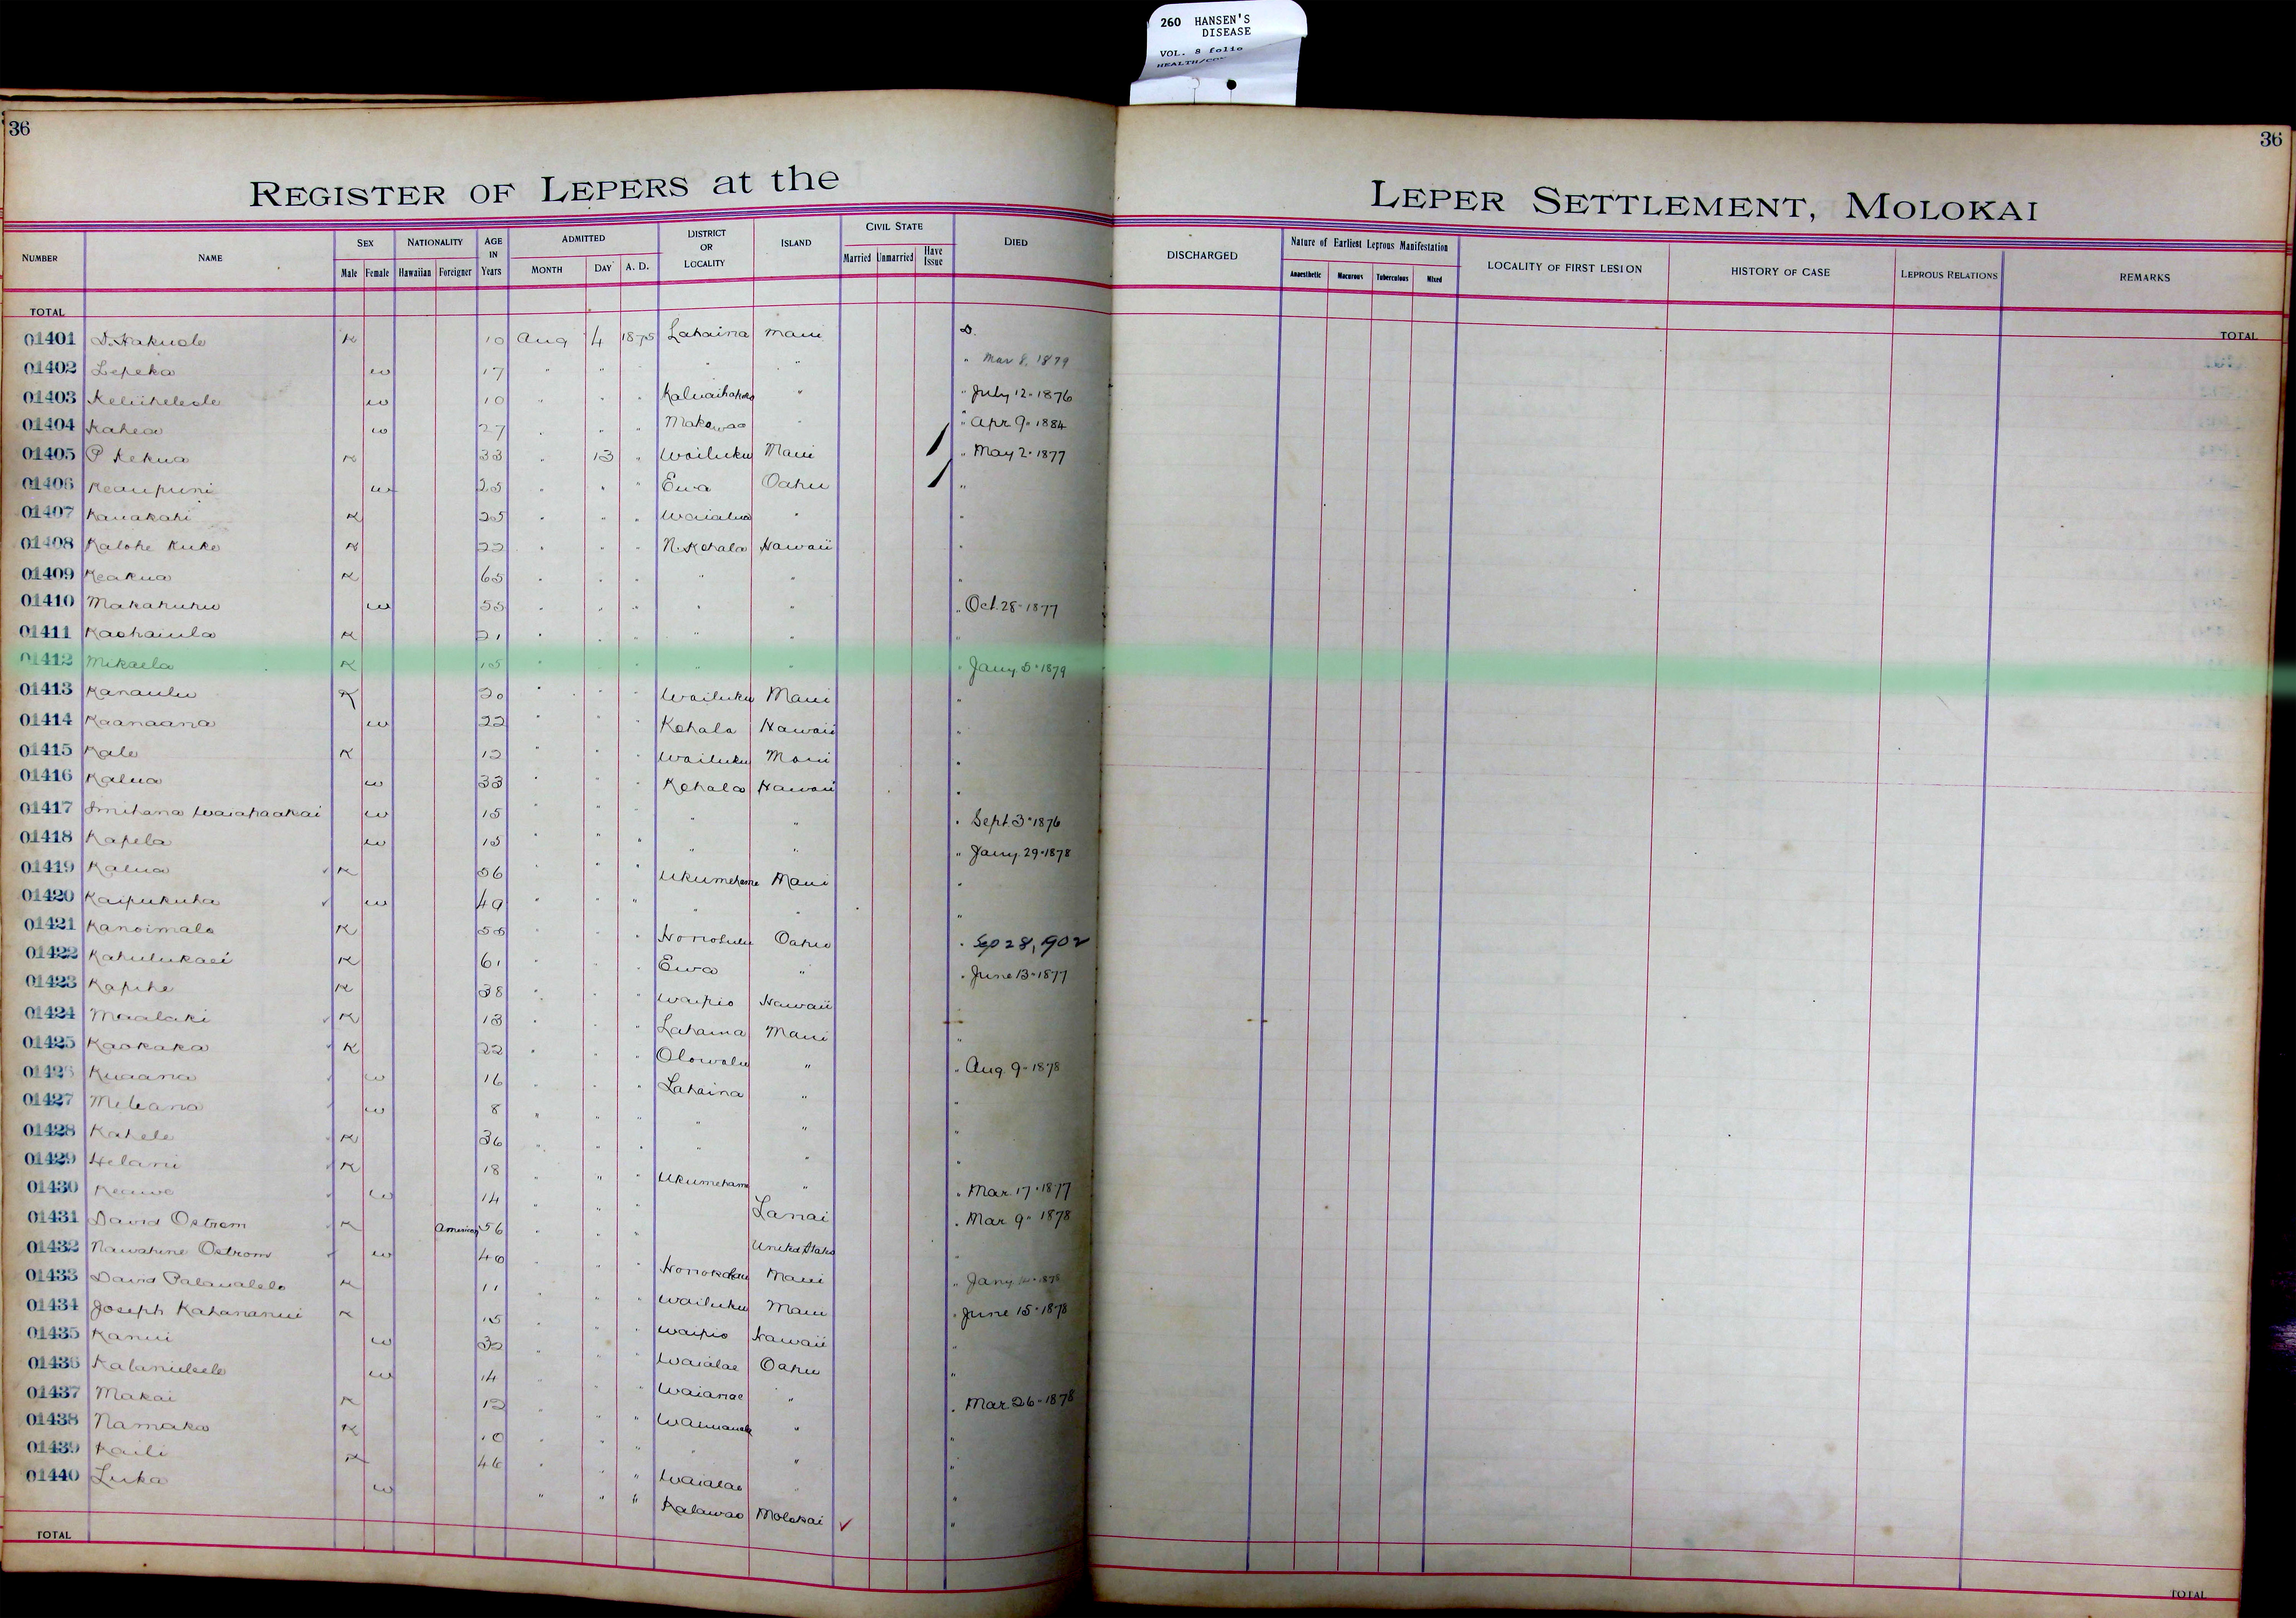 260 HANSEN'S
DISEASE
VOL. 8 folio
36
36
REGISTER OF LEPERS at the LEPER SETTLEMENT, MOLOKAI
NUMBER NAME SEX NATIONALITY AGE IN Years ADMITTED DISTRICT OR LOCALITY ISLAND CIVIL STATE DIED DISCHARGED Nature of Earliest Leprous Manifestation LOCALITY OF FIRST LESION HISTORY OF CASE LEPROUS RELATIONS REMARKS
Male Female Hawaiian Foreigner MONTH DAY A. D. Married Unmarried Have Issue Anaesthetic Macurous Tuberculous Mixed
TOTAL TOTAL
01401 K 10 Aug 4 1875 Lahaina Maui D.
01402 Lepeka w 17 " " " " " " Mar 8, 1879
01403 w 10 " " " " " July 12-1876
01404 Kahea w 27 " " " Makawao " " Apr 9-1884
01405 P Kekua K 33 " 13 " Wailuku Maui / " May 2-1877
01406 Keaupuni w 25 " " " Ewa Oahu / "
01407 Kauakahi K 25 " " " Waialua " "
01408 Kalohe Kuke K 22 " " " N. Kohala Hawaii "
01409 Keakua K 65 " " " " " "
01410 Makahuhu w 55 " " " " " " Oct. 28-1877
01411 Kaohaiula K 21 " " " " " "
01412 Mikaela K 15 " " " " " " Jany 5-1879
01413 Kanaulu K 20 " " " Wailuku Maui "
01414 Kaanaana w 22 " " " Kohala Hawaii "
01415 Kale K 12 " " " Wailuku Maui "
01416 Kalua w 33 " " " Kohala Hawaii "
01417 w 15 " " " " " " Sept. 3-1876
01418 Kapela w 15 " " " " " " Jany. 29-1878
01419 Kalua K 56 " " " Ukumehame Maui "
01420 Kaipukuha w 49 " " " " " "
01421 Kanoimalo K 58 " " " Honolulu Oahu " Sep 28, 1902
01422 Kahulukaei K 61 " " " Ewa " " June 13-1877
01423 Kapihe K 38 " " " Waipio Hawaii
01424 Maalaki K 13 " " " Lahaina Maui "
01425 Kaokaka K 22 " " " Olowalu " " Aug. 9-1878
01426 Kuaana w 16 " " " Lahaina " "
01427 Meleana w 8 " " " " " "
01428 Kahele K 36 " " " " " "
01429 Helani K 18 " " " Ukumehame " " Mar. 17-1877
01430 Keawe w 14 " " " Lanai " Mar. 9-1878
01431 David Ostrom K American 56 " " " United States "
01432 Nawahine Ostrom w 40 " " " Honokohau Maui " Jany 1878
01433 David Palaualelo K 11 " " " Wailuku Maui " June 15-1878
01434 Joseph Kahananui K 15 " " " Waipio Hawaii "
01435 Kanui w 32 " " " Waialae Oahu "
01436 w 14 " " " Waianae " " Mar. 26-1878
01437 Makai K 12 " " " " "
01438 Namaka K 10 " " " " " "
01439 Kaili K 46 " " " Waialae " "
01440 Luka w " " " Kalawao Molokai ✓ "
TOTAL TOTAL